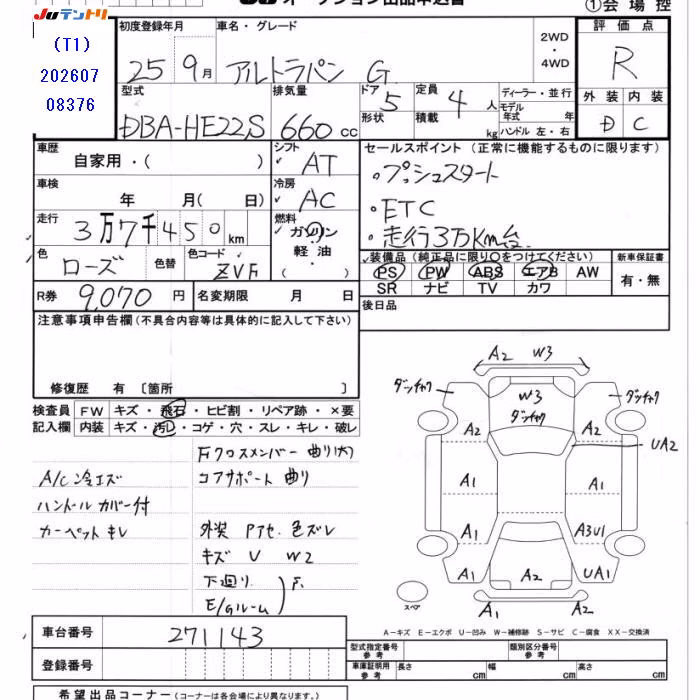 JUテントリ
オークション出品申込書
①会場控
(T1)
202607
08376
初度登録年月
25 9月
車名・グレード
アルトラパン G
2WD
・
4WD
評価点
R
外装 内装
D C
型式
DBA-HE22S
排気量
660 cc
ドア 5
形状
定員 4 人
積載 kg
ディーラー・並行
モデル年式 年
ハンドル 左・右
車歴
自家用・( )
シフト
AT
冷房
AC
燃料
ガソリン
・
軽油
( )
車検
年 月( 日)
走行
3万7千450 km
色
ローズ
色替
色コード
ZVF
R券 9,070 円
名変期限 月 日
セールスポイント (正常に機能するものに限ります)
・プッシュスタート
・ETC
・走行3万Km台
装備品 (純正品に限り○をつけてください)
PS PW ABS エアB AW
SR ナビ TV カワ
新車保証書
有・無
後日品
注意事項申告欄(不具合内容等は具体的に記入して下さい)
修復歴 有〔箇所 〕
検査員 FW キズ・飛石・ヒビ割・リペア跡・×要
記入欄 内装 キズ・汚レ・コゲ・穴・スレ・キレ・破レ
A/C冷エズ
ハンドルカバー付
カーペットキレ
Fクロスメンバー曲り(大)
コアサポート曲り
外装 Pアセ 色ズレ
キズ U W2
下廻り
E/Gルーム
F.
A2 W3
W3
ダッチャク
ダッチャク
ダッチャク
A2 A2
UA2
A1 A1
A1 A3U1
A1 A2 UA1
A1 A2
スペア
A−キズ E−エクボ U−凹み W−補修跡 S−サビ C−腐食 XX−交換済
車台番号 271143
登録番号
型式指定番号 参考
類別区分番号 参考
車庫証明用 参考 長さ cm 幅 cm 高さ cm
希望出品コーナー (コーナーは各会場により異なります。)